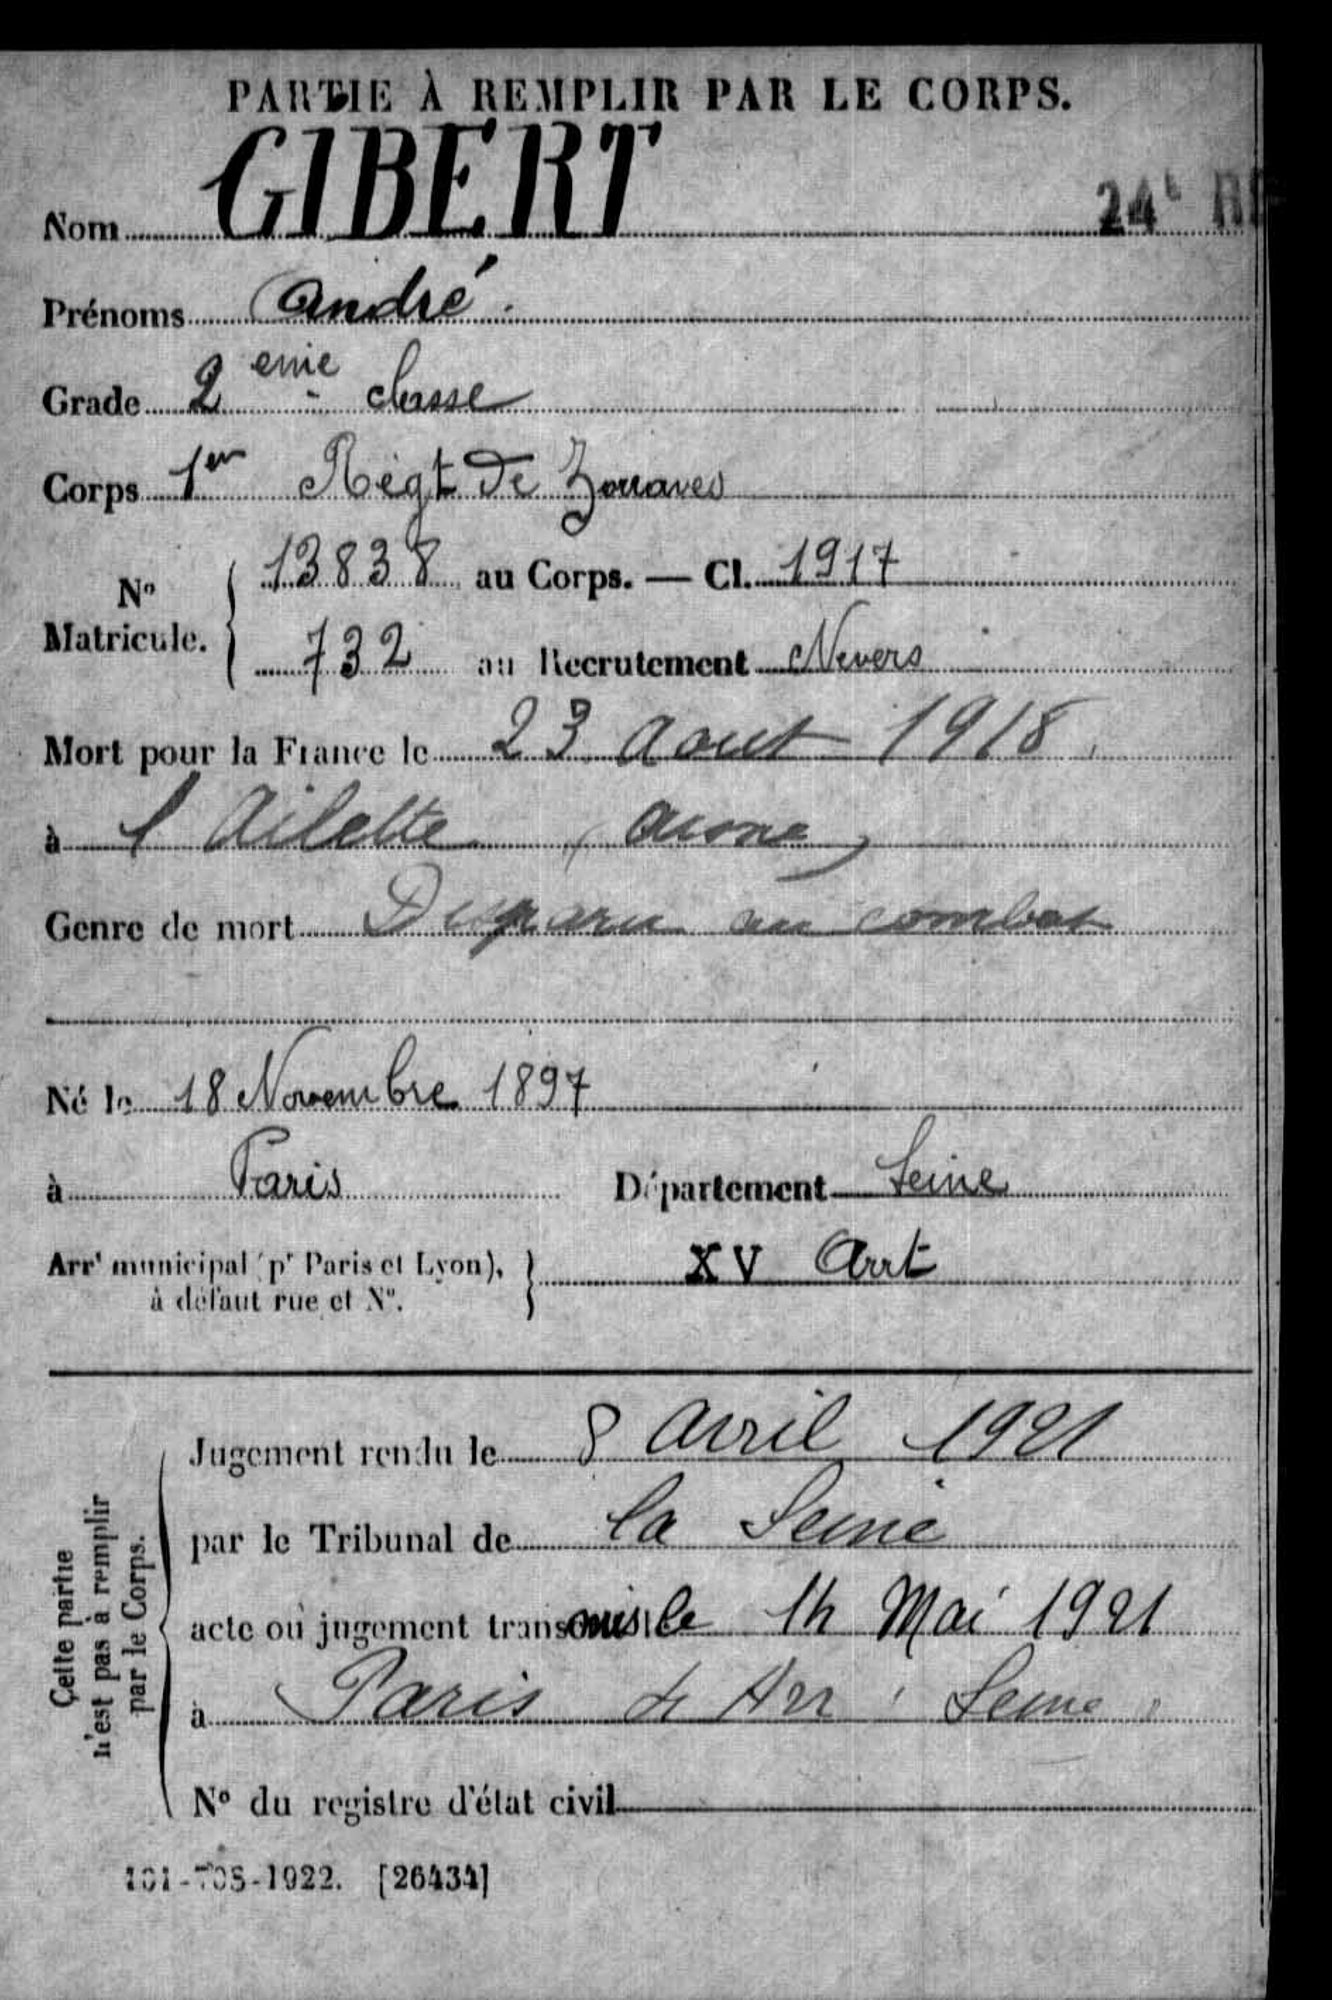 PARTIE À REMPLIR PAR LE CORPS.
Nom GIBERT
24e
Prénoms André.
Grade 2eme classe
Corps 1er Régt de Zouaves
No Matricule. 13838 au Corps. — Cl. 1917
732 au Recrutement Nevers
Mort pour la France le 23 Aout 1918
à l'Ailette (Aisne)
Genre de mort Disparu au combat
Né le 18 Novembre 1897
à Paris Département Seine
Arrt municipal (pr Paris et Lyon), à défaut rue et No. XV Arrt
Cette partie n'est pas à remplir par le Corps.
Jugement rendu le 8 Avril 1921
par le Tribunal de la Seine
acte ou jugement transmis le 14 Mai 1921
à Paris Arr Seine
No du registre d'état civil
101-708-1922. [26434]